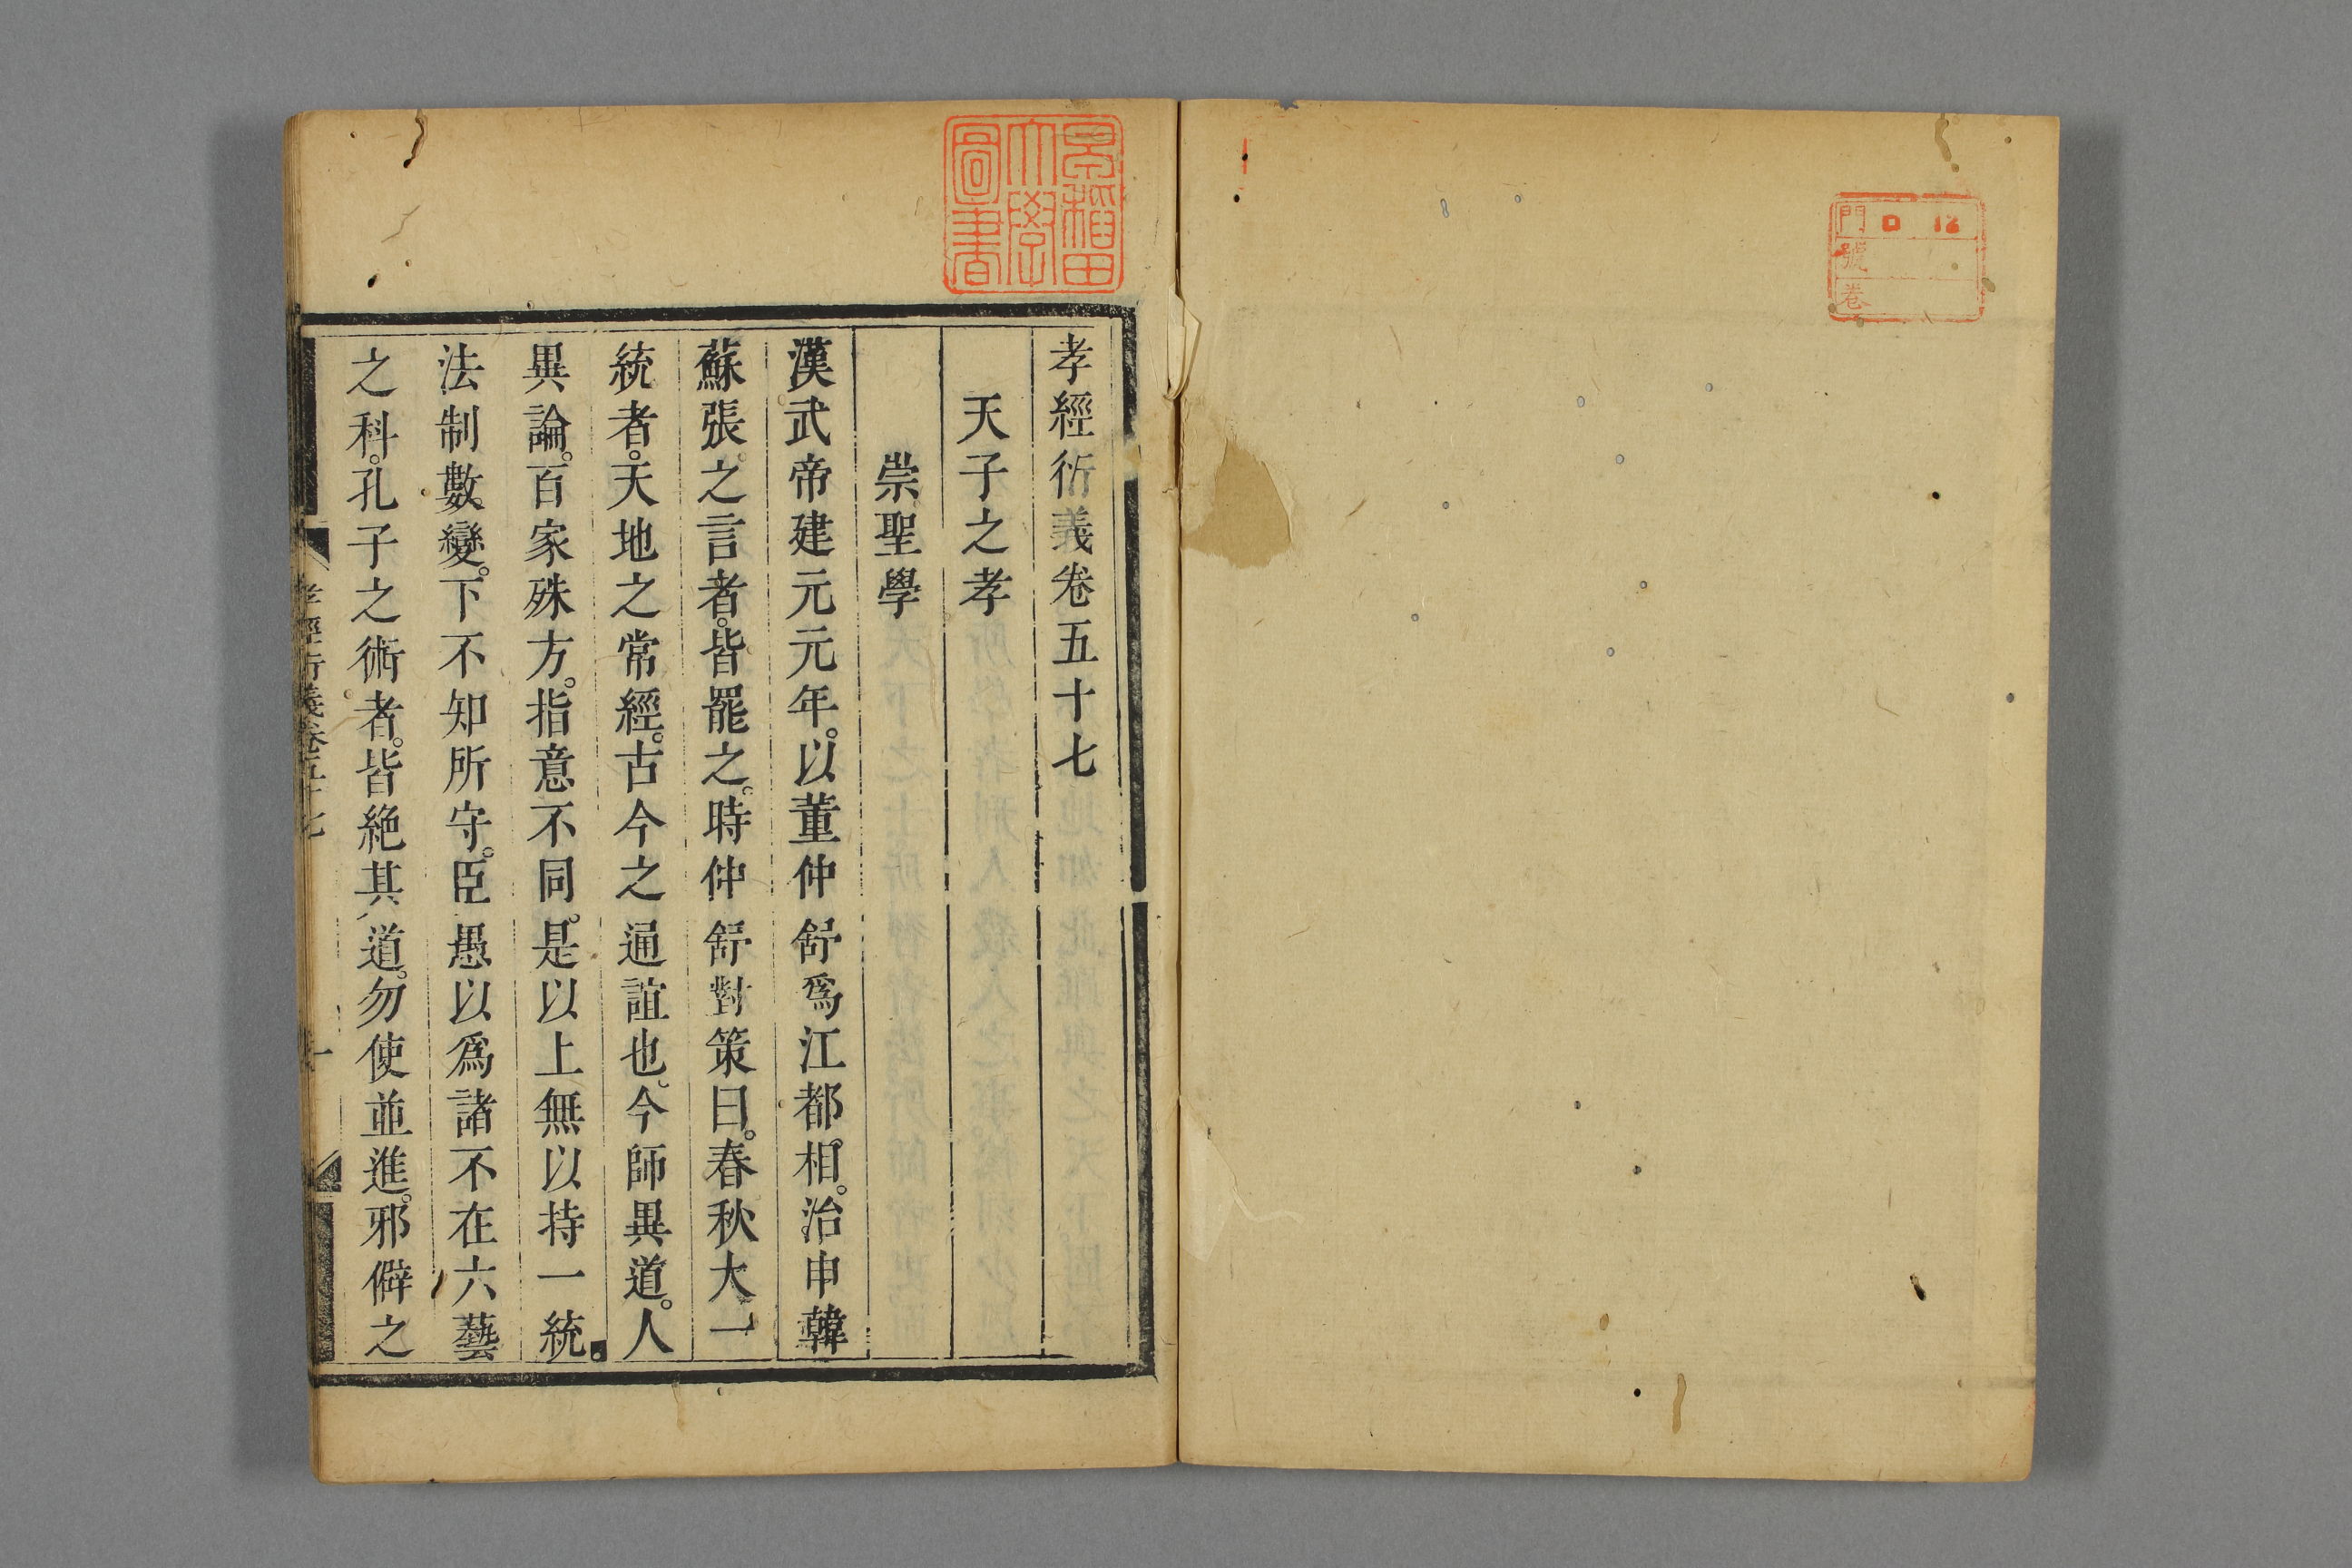 門 ロ 12
號
卷
早稻田
大學
圖書
孝經衍義卷五十七
天子之孝
崇聖學
漢武帝建元元年。以董仲舒爲江都相。治申韓
蘇張之言者。皆罷之。時仲舒對策曰。春秋大一
統者。天地之常經。古今之通誼也。今師異道。人
異論。百家殊方。指意不同。是以上無以持一統。
法制數變。下不知所守。臣愚以爲諸不在六藝
之科。孔子之術者。皆絶其道。勿使並進。邪僻之
孝經衍義卷五十七 一